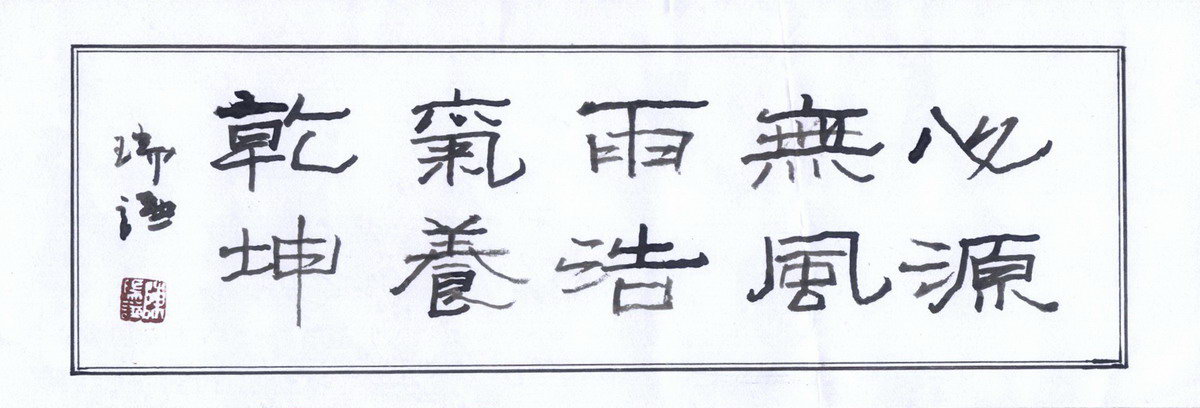 心源
無風
雨浩
氣養
乾坤
瑞